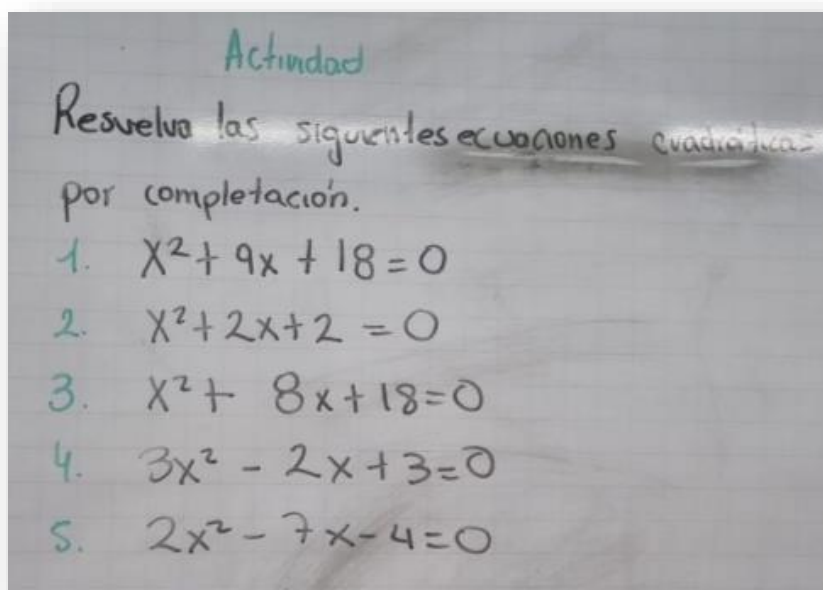 Actividad
Resuelva las siguientes ecuaciones cuadráticas
por completación.
1. X² + 9x + 18 = 0
2. X² + 2x + 2 = 0
3. X² + 8x + 18 = 0
4. 3x² - 2x + 3 = 0
5. 2x² - 7x - 4 = 0